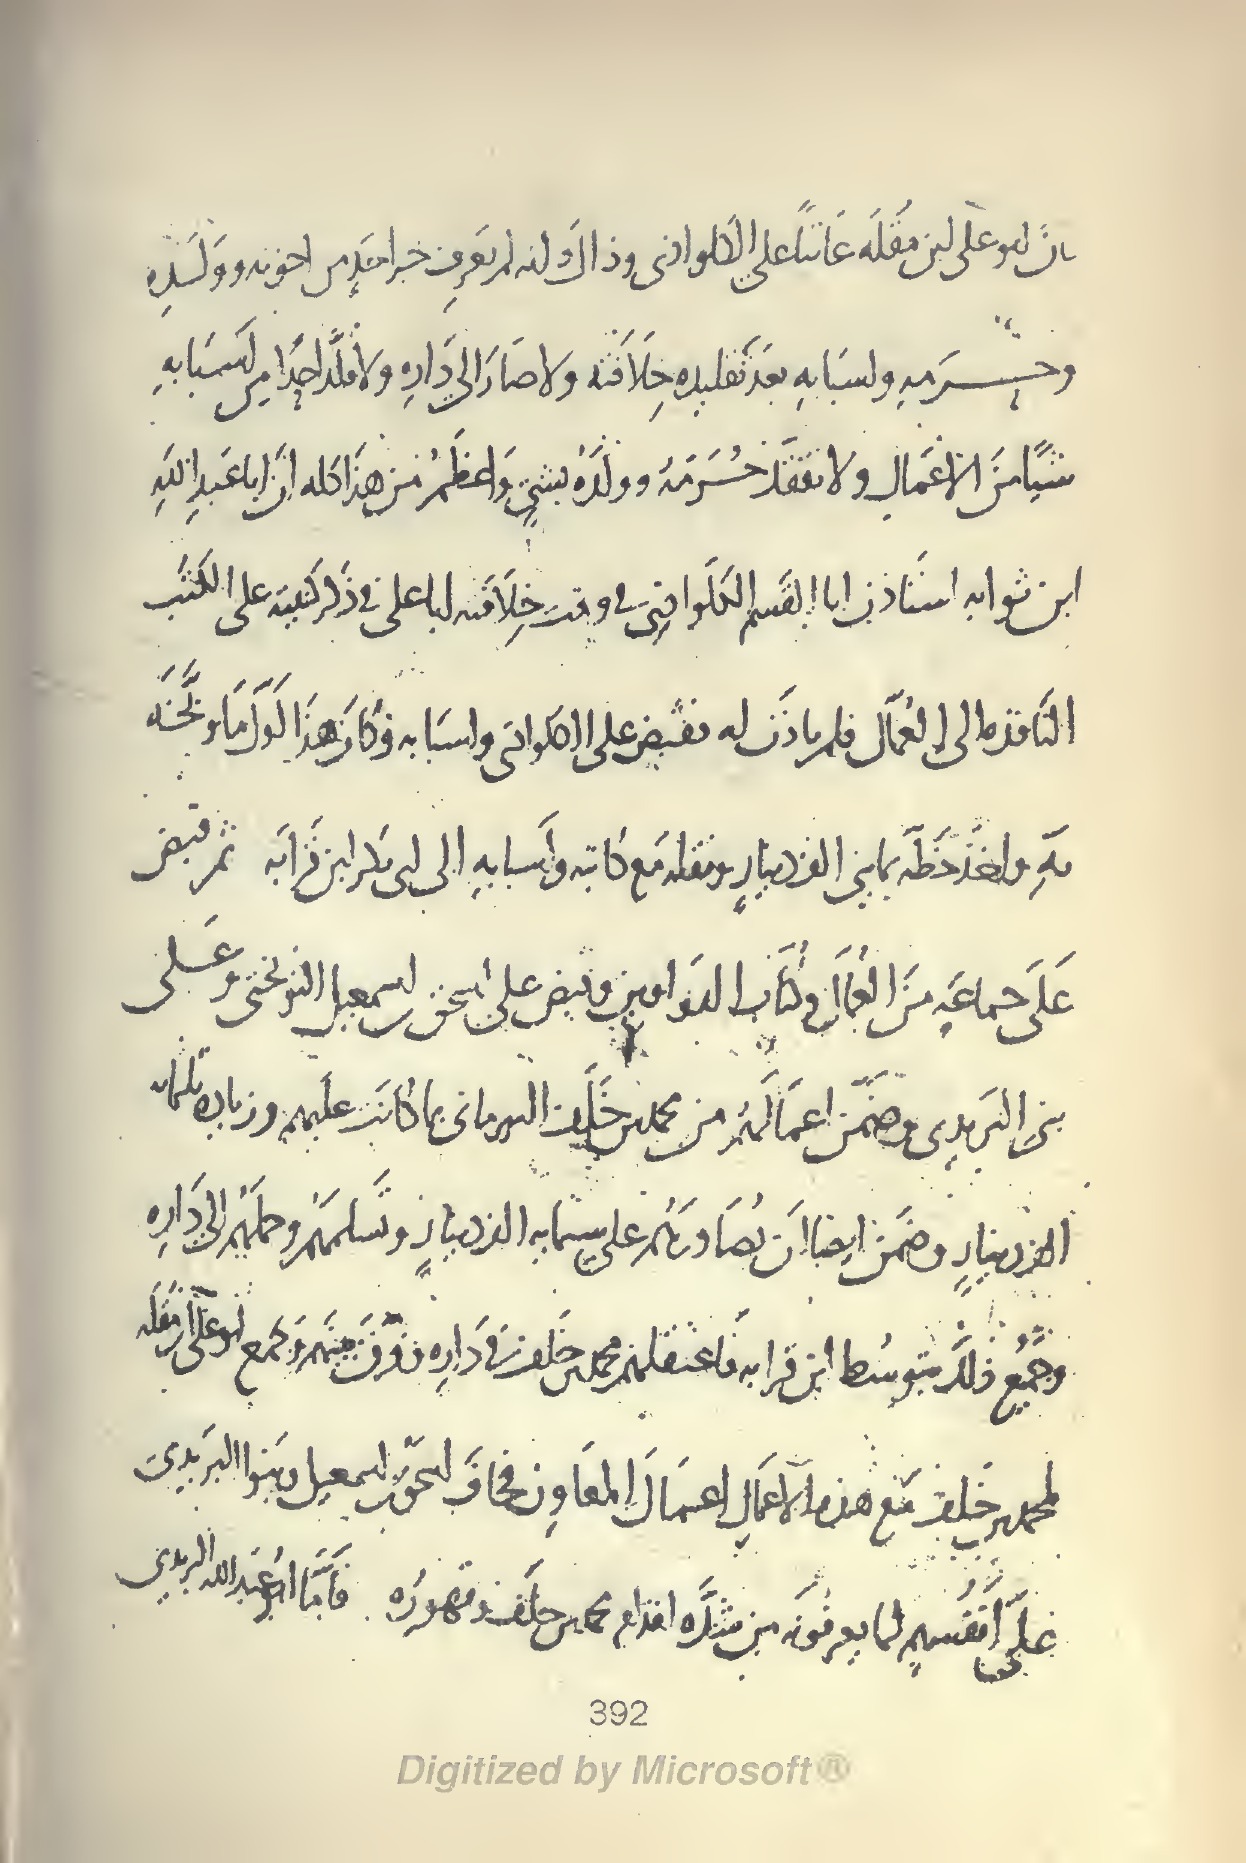 كان ابو على ابن مقلة عاتبًا على الكلواذى وذاك انه لم يعرف خبر احد من اخوته وولده
وحرمه واسبابه بعد تقليده خلافته ولا صار الى داره ولا قلّد احدًا من اسبابه
شيًا من الاعمال ولا تفقد حرمه وولده بشيءٍ واعظم من هذا كله ان ابا عبد الله
ابن ثوابه استاذن ابا القسم الكلواذى فى وقت خلافته لابا على فى ذكر كنيته على الكتب
النافذه الى العمال فلم ياذن له فقبض على الكلواذى واسبابه فكان هذا اول ما
به واخذ خطه بمايتى الف دينارٍ ونقله مع كاتبه واسبابه الى ابى بكر ابن قرابه ثم قبض
على جماعه من العمال وكتاب الدواوين وقبض على اسحق بن اسمعيل النوبختى وعلى
بنى البريدى وضمن اعمالهم من محمد بن خلف النيرمانى بما كانت عليهم وزياده ثلثمايه
الف دينارٍ وضمن ايضا ان يصادرهم على ستمايه الف دينارٍ وتسلمهم وحملهم الى داره
وجميع ذلك بتوسط ابن قرابه فاعتقلهم محمد بن خلف فى داره وفرق بينهم وجمع ابو على ابن مقله
لمحمد بن خلف مع هذه الاعمال اعمال المعاون فخاف اسحق بن اسمعيل وبنوا البريدى
على انفسهم لما يعرفونه من شدّه اقدام محمد بن خلف وتهوره فامّا ابو عبد الله البريدى
392
Digitized by Microsoft®